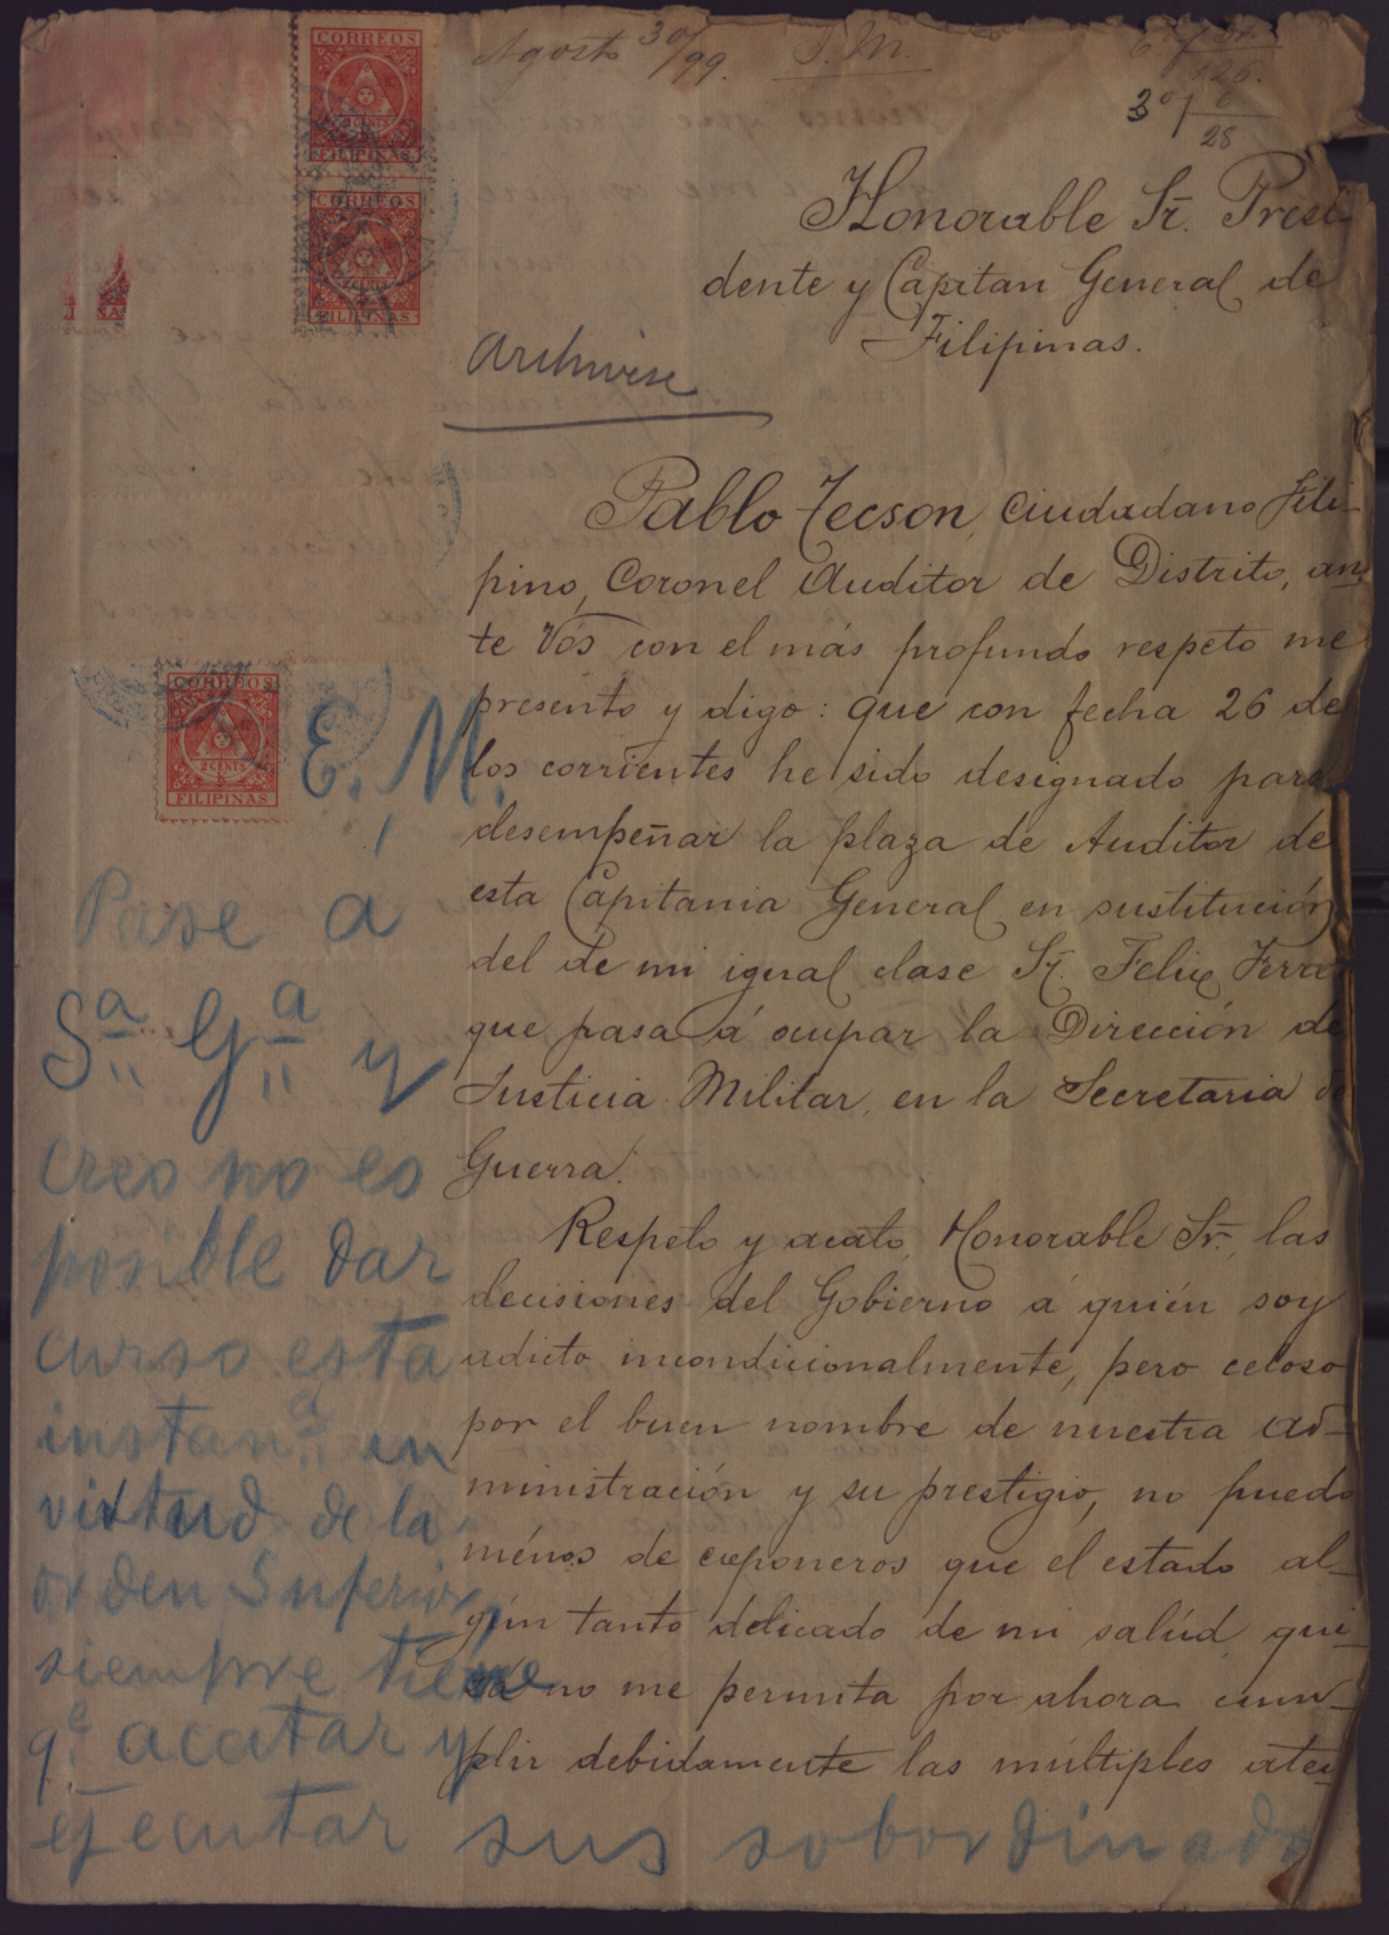 Agosto 30/99. J. M.
30/
28
CORREOS
FILIPINAS
CORREOS
FILIPINAS
Honorable Sr. Presi-
dente y Capitan General de
Filipinas.
Archivese
Pablo Tecson, ciudadano Fili-
pino, Coronel Auditor de Distrito, an-
te Vós con el más profundo respeto me
presento y digo: que con fecha 26 de
los corrientes he sido designado para
desempeñar la plaza de Auditor de
esta Capitania General en sustitución
del de mi igual clase Sr. Felix Ferrer
que pasa á ocupar la Dirección de
Justicia Militar, en la Secretaria de
Guerra.
Respeto y acato, Honorable Sr., las
decisiones del Gobierno á quién soy
adicto incondicionalmente, pero celoso
por el buen nombre de nuestra ad-
ministración y su prestigio, no puedo
ménos de exponeros que el estado al-
gún tanto delicado de mi salúd qui-
zá no me permita por ahora cum-
plir debidamente las múltiples aten-
CORREOS
2 CENTS
FILIPINAS
E. M.
Pase a
Sª Gª y
creo no es
posible dar
curso esta
instanª en
virtud de la
orden Superior
siempre tiene
qe acatar y
ejecutar sus sobordinado